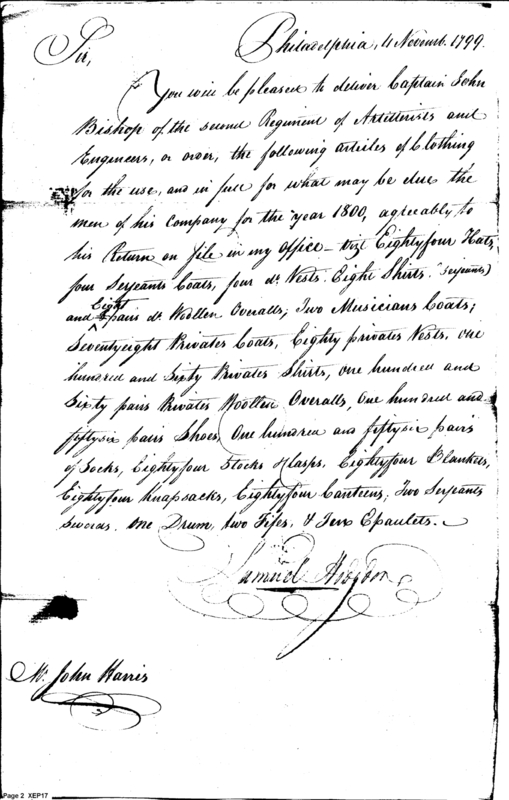 Philadelphia, 11 Novemb. 1799.
Sir,
You will be pleased to deliver Captain John
Bishop of the second Regiment of Artillerists and
Engineers, or order, the following articles of Clothing
for the use, and in full for what may be due the
men of his Company for the year 1800, agreeably to
his Return on file in my Office – Vizt Eightyfour Hats,
four Serjeants Coats, four do. Vests. Eight Shirts. (Serjeants)
and Eight pairs do. Woollen Overalls; Two Musicians Coats;
Seventyeight Privates Coats, Eighty privates Vests. one
hundred and Sixty Privates Shirts, one hundred and
Sixty pairs Privates Woollen Overalls, One hundred and
fiftysix pairs Shoes, One hundred and fiftysix pairs
of Socks, Eightyfour Stocks & Clasps. Eightyfour Blankets,
Eightyfour Knapsacks, Eightyfour Canteens; Two Serjeants
Swords. One Drum, two Fifes, & Epaulets.
Samuel Hodgdon
Mr. John Harris
Page 2 XEP17